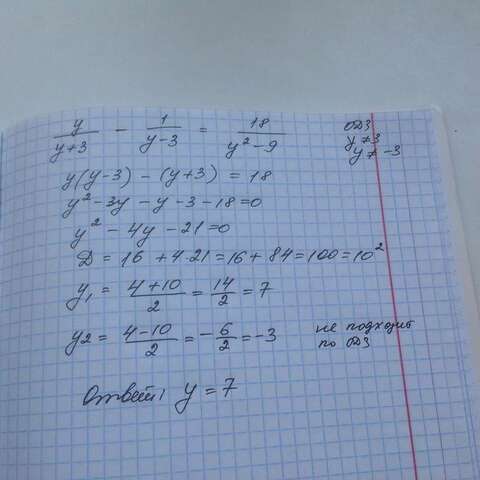 y/(y+3) − 1/(y−3) = 18/(y²−9)
ОДЗ
y ≠ 3
y ≠ −3
y(y−3) − (y+3) = 18
y²−3y −y −3 −18=0
y² −4y −21=0
Д = 16 +4·21=16+84=100=10²
y₁ = (4+10)/2 = 14/2 = 7
y2 = (4−10)/2 = −6/2 = −3
не подходит
по ОДЗ
Ответ: y = 7